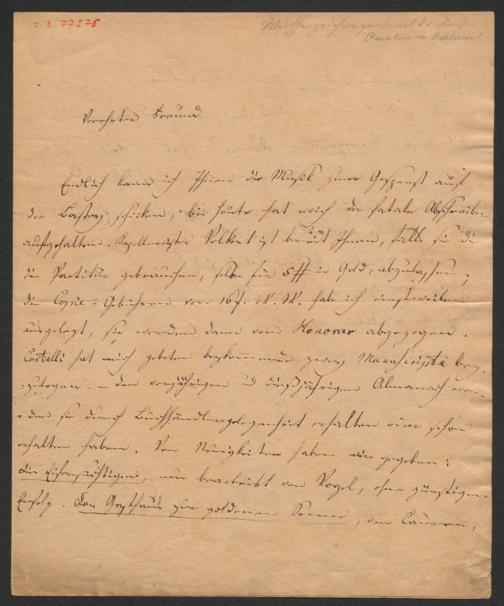 I.N. 77275
Verehrter Freund
Endlich kann ich Ihnen die Musik zum Gespenst auf
der Bastey, schicken; bis heute hat mich der fatale Abschreiber
aufgehalten. Kapellmeister Volkert ist bereit Ihnen, falls sie
die Partitur gebrauchen, selbe für 5# in Gold, abzulassen;
die Copie=Gebühren von 16 f. W. W. hab ich einstweilen
ausgelegt, sie werden dann vom Honorar abgezogen.
Castelli hat mich gebeten beykommende zwey Manuscripte bey-
zulegen. – den vorjährigen und dießjährigen Almanach
den sie durch Buchhändlergelegenheit erhalten oder schon
erhalten haben. Von Neuigkeiten haben wir gegeben:
die Eifersüchtigen, neu bearbeitet von Vogel, ohne günstigen
Erfolg. Das Gasthaus zur goldenen Sonne, von Clauren,